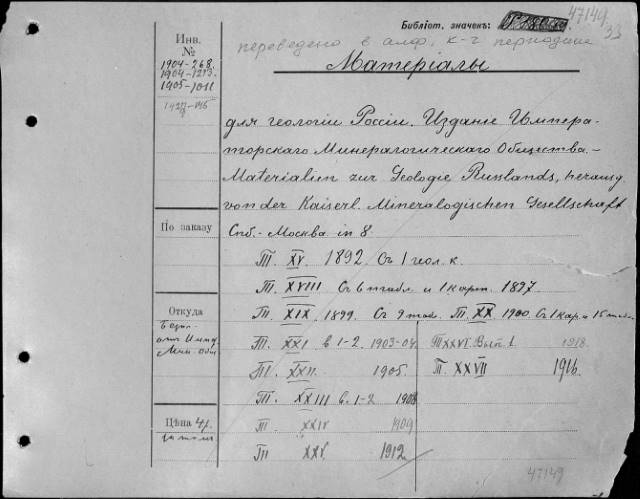 Библіот. значекъ:
47149
33
переведено в алф. к-г периодики
Инв.
№
1904-268.
1904-1213.
1905-1011
Матеріалы
для геологіи Россіи. Изданіе Импера-
торскаго Минералогическаго Общества.-
Materialien zur Geologie Russlands, herausg.
von der Kaiserl. Mineralogischen Gesellschaft
По заказу
Спб.-Москва. in 8.
Т. XV. 1892. Съ 1 геол. к.
Т. XVIII Съ 6 табл. и 1 карт. 1897.
Откуда
Т. XIX. 1899. Съ 9 таб. Т. XX. 1900. Съ 1 кар. и 15 табл.
Т. XXI в 1-2. 1903-04.
Т XXVI. Вып. 1 1918.
Т. XXII. 1905.
Т. XXVII 1916.
Т. XXIII в. 1-2 1908
Цѣна
Т. XXIV 1909
Т XXV. 1912
47149